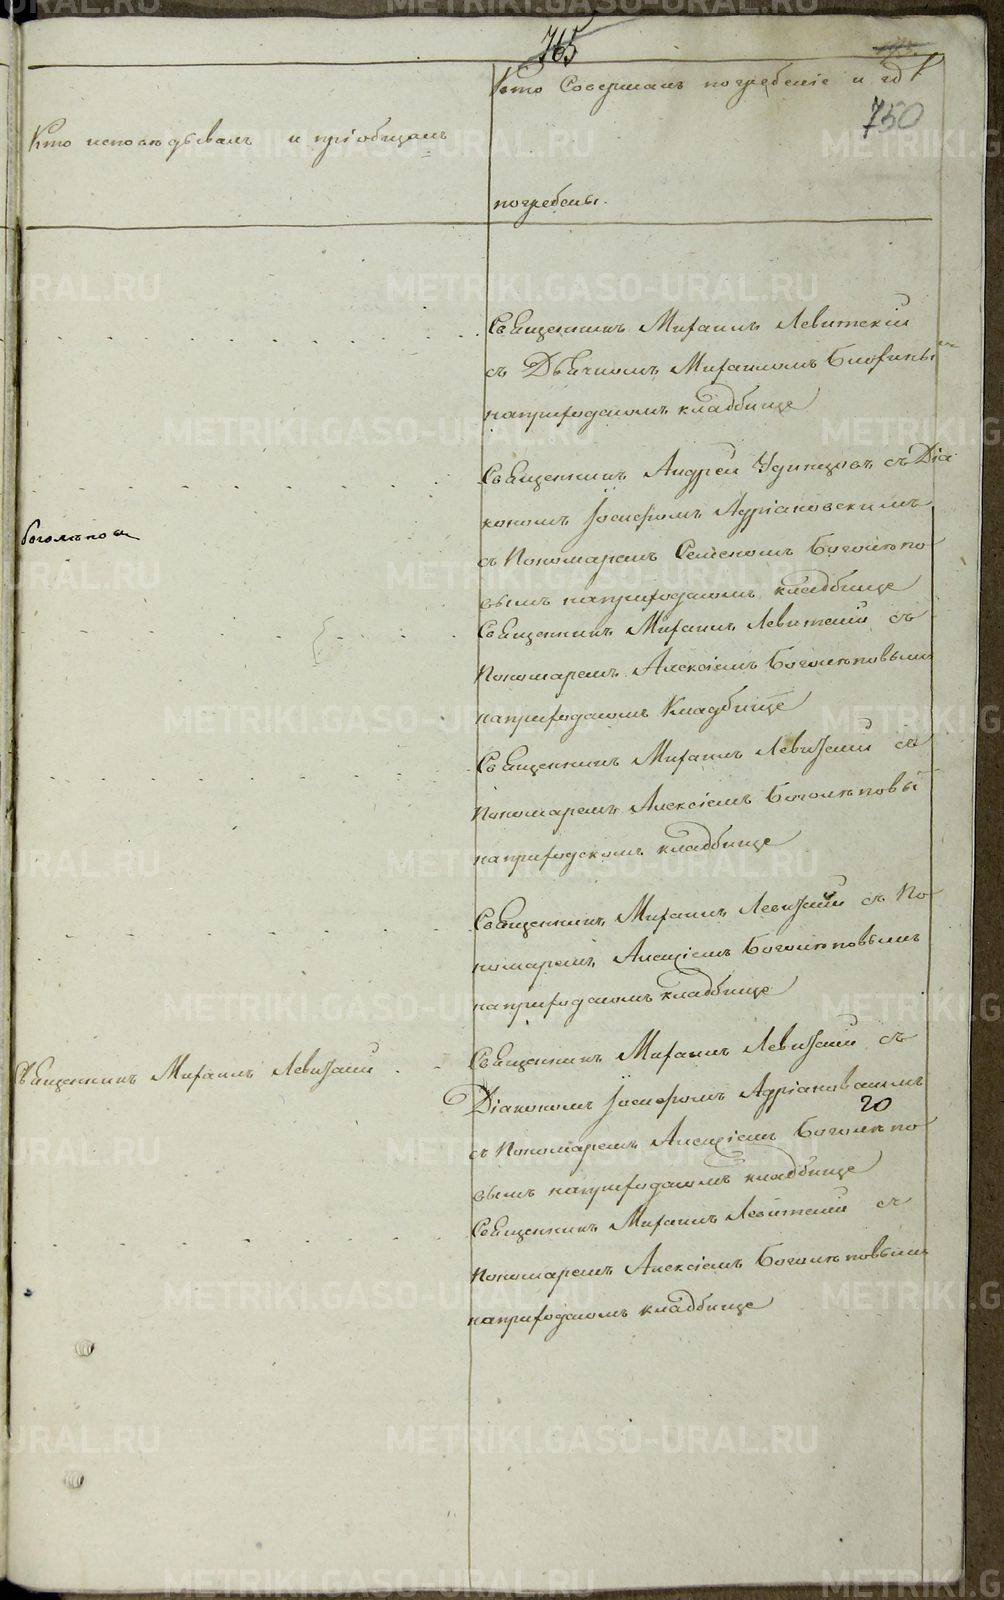 765
750
Кто исповѣдывалъ и пріобщалъ
Кто Совершалъ погребеніе и гдѣ
погребены.
Священникъ Михаилъ Левитскій
съ Дьячкомъ Михаиломъ
на приходскомъ кладбище
Священникъ Андрей Удинцовъ съ Діа
кономъ Іосифомъ Адріановскимъ
съ Пономаремъ Боголѣпо
вымъ на приходскомъ кладбище
Боголѣпов
Священникъ Михаилъ Левитскій съ
Пономаремъ Алексіемъ Боголѣповымъ
на приходскомъ Кладбище
Священникъ Михаилъ Левитскій съ
Пономаремъ Алексіемъ Боголѣповы
на приходскомъ кладбище
Священникъ Михаилъ Левитскій съ По
номаремъ Алексіемъ Боголѣповымъ
на приходскомъ кладбище
Священникъ Михаилъ Левитскій
Священникъ Михаилъ Левитскій съ
Діакономъ Іосифомъ Адріановскимъ
20
съ Пономаремъ Алексіемъ Боголѣпо
вымъ на приходскомъ кладбище
Священникъ Михаилъ Левитскій съ
Пономаремъ Алексіемъ Боголѣповымъ
на приходскомъ кладбище
METRIKI.GASO-URAL.RU